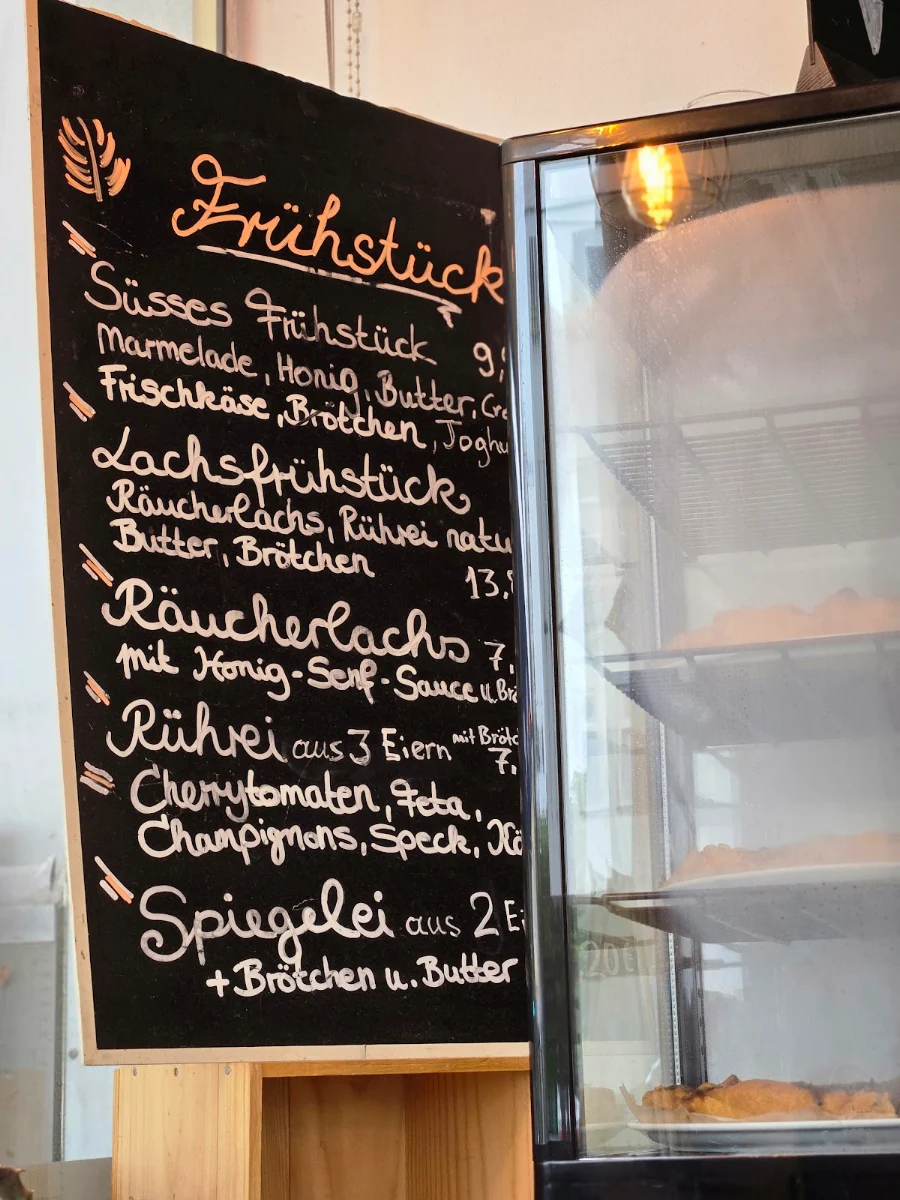 Frühstück
Süsses Frühstück 9,
Marmelade, Honig, Butter,
Frischkäse, Brötchen,
Lachsfrühstück
Räucherlachs, Rührei
Butter, Brötchen
13,
Räucherlachs 7,
mit Honig-Senf-Sauce u.
Rührei aus 3 Eiern mit
7,
Cherrytomaten, Feta,
Champignons, Speck,
Spiegelei aus 2
+ Brötchen u. Butter
20€